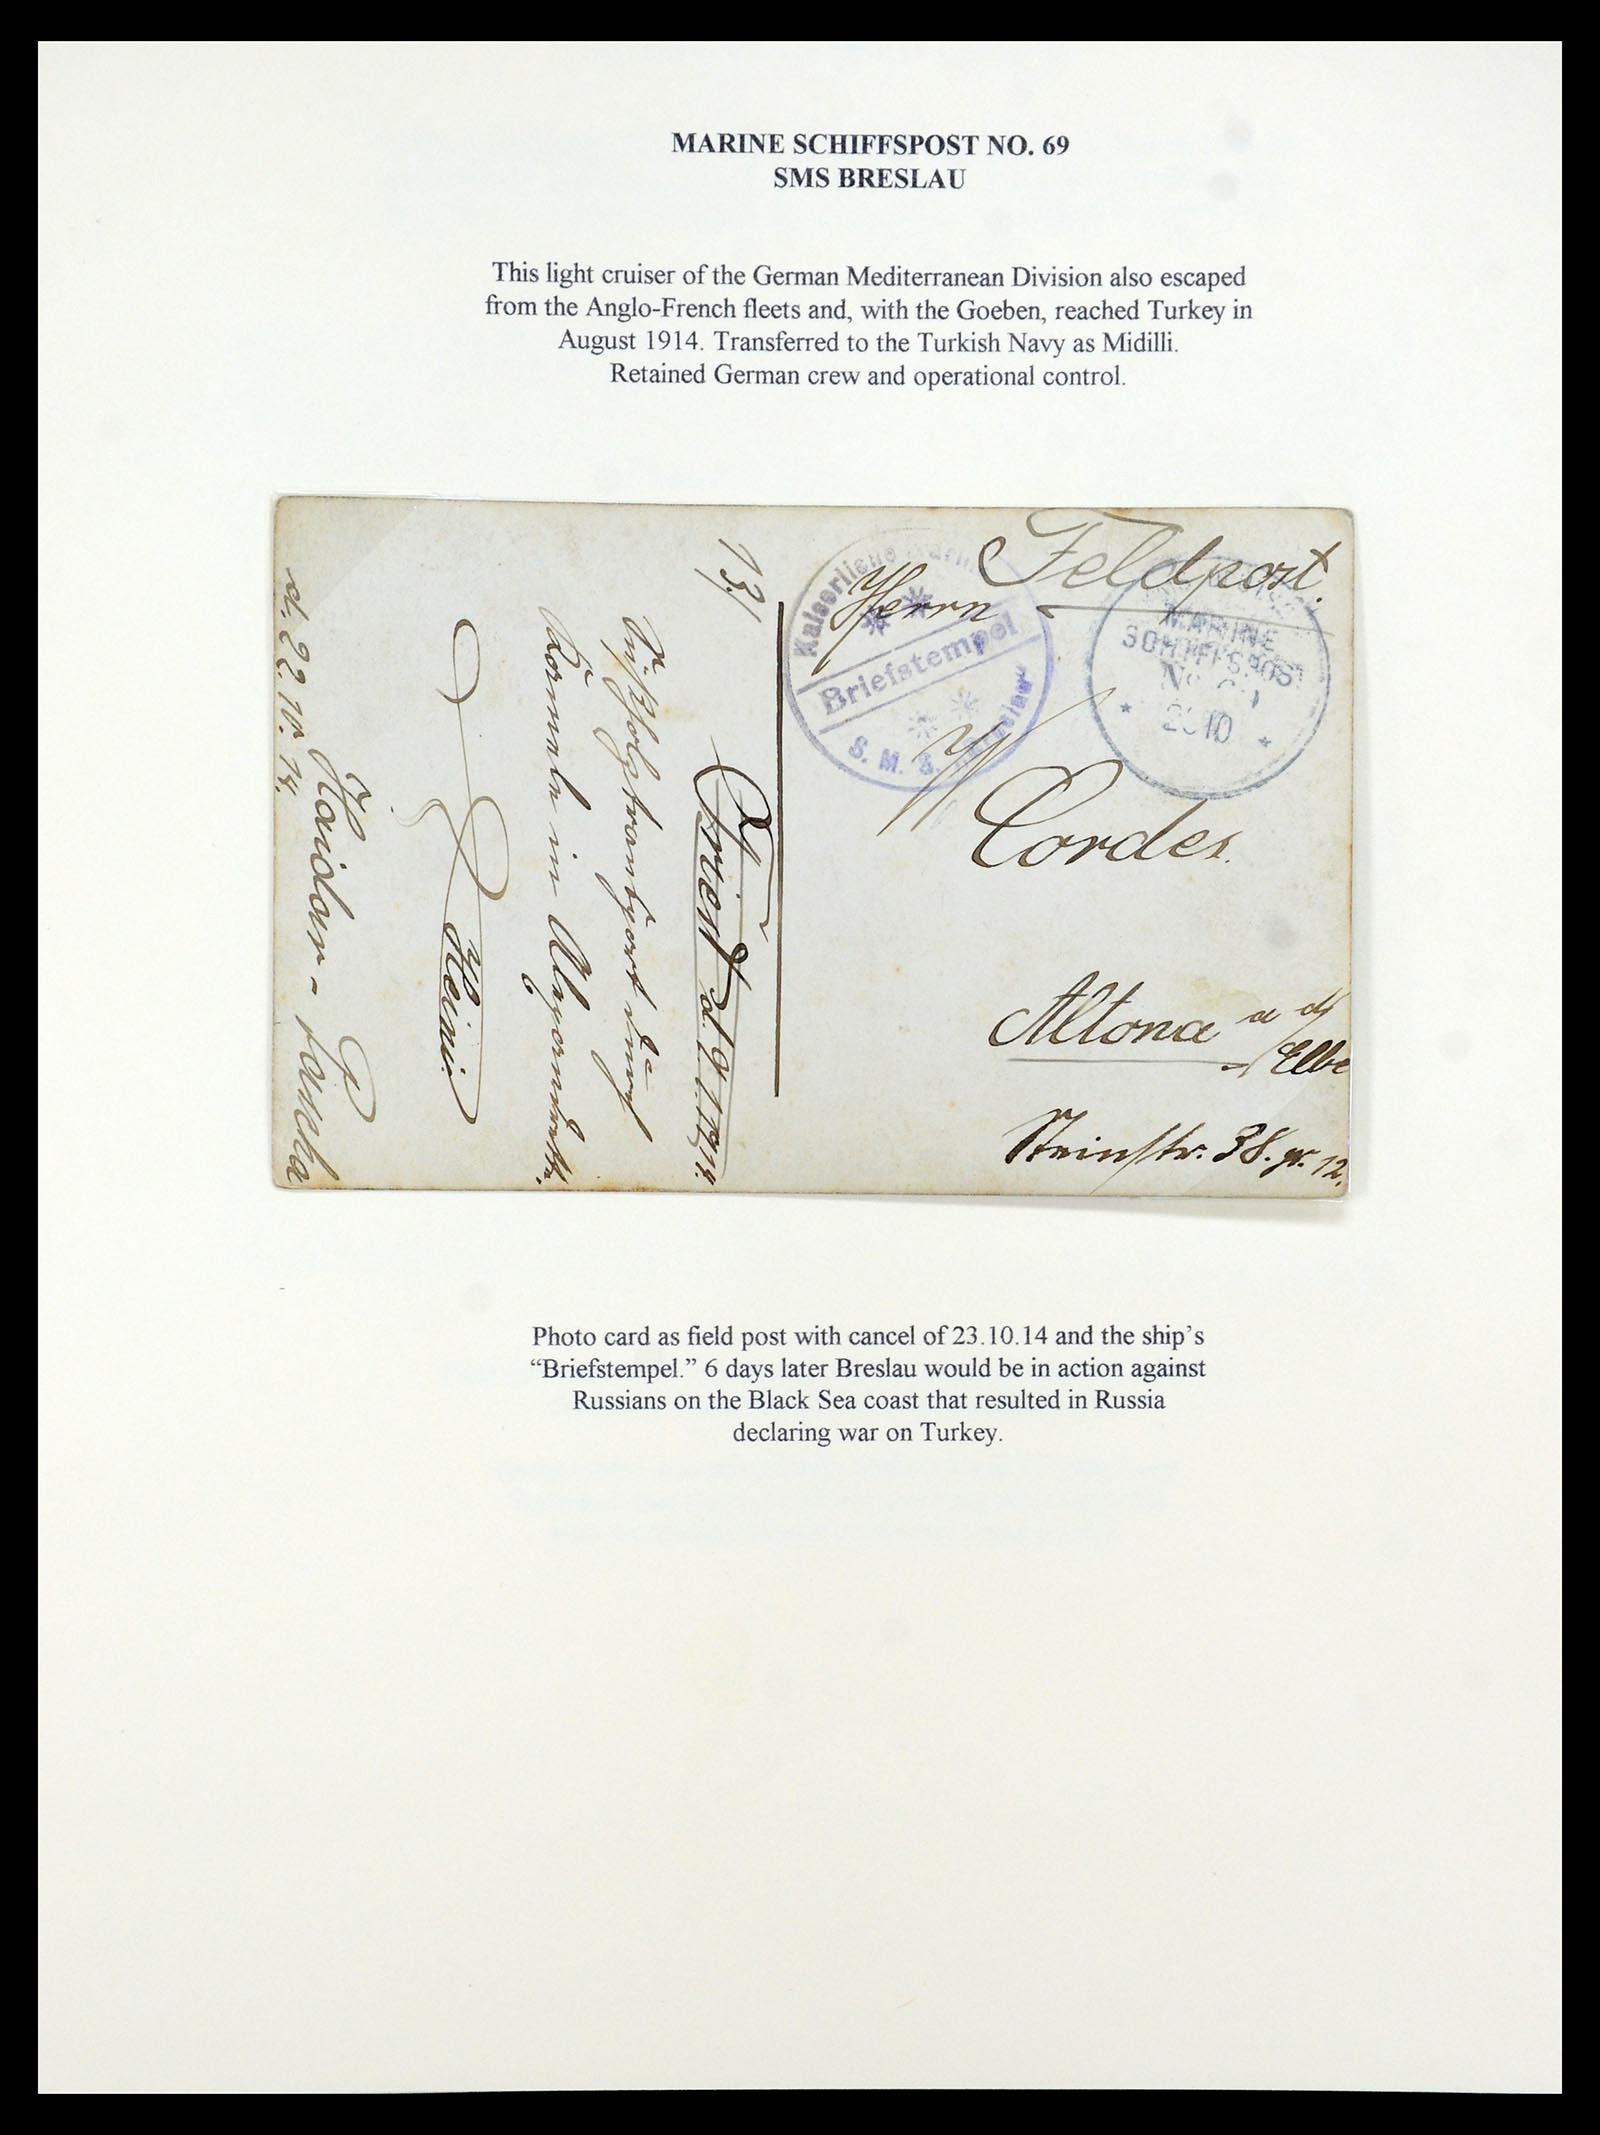 MARINE SCHIFFSPOST NO. 69
SMS BRESLAU
This light cruiser of the German Mediterranean Division also escaped
from the Anglo-French fleets and, with the Goeben, reached Turkey in
August 1914. Transferred to the Turkish Navy as Midilli.
Retained German crew and operational control.
Feldpost.
Herrn
W Cordes.
Altona a d/
Elbe
Steinstr. 38. gr. 12.
Kaiserliche Marine
Briefstempel
S. M. S. "Breslau"
MARINE
SCHIFFSPOST
No
10
13/
Orient d.
durch
Kamele in
Heini
Haidar-Pascha
d. 22.10.14.
Photo card as field post with cancel of 23.10.14 and the ship's
“Briefstempel.” 6 days later Breslau would be in action against
Russians on the Black Sea coast that resulted in Russia
declaring war on Turkey.